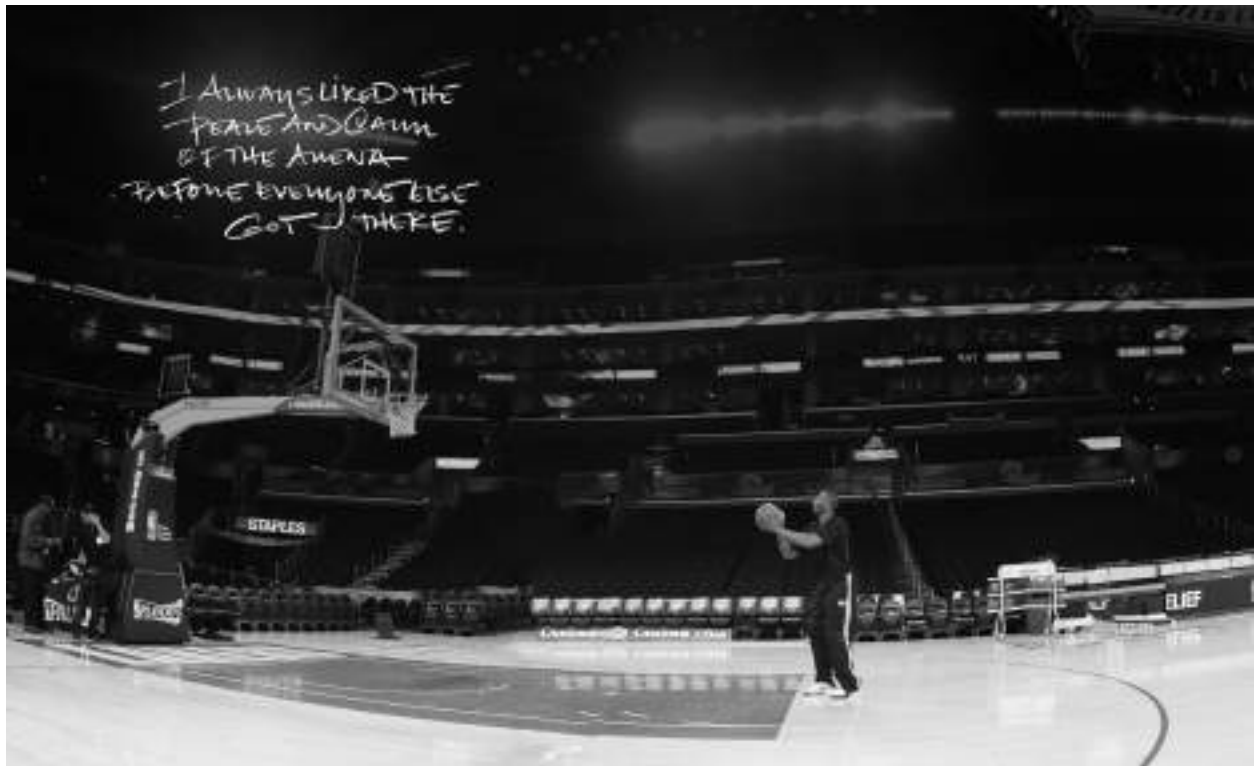 I ALWAYS LIKED THE
PEACE AND CALM
OF THE ARENA
BEFORE EVERYONE ELSE
GOT THERE.
STAPLES
SPALDING
ELIEF